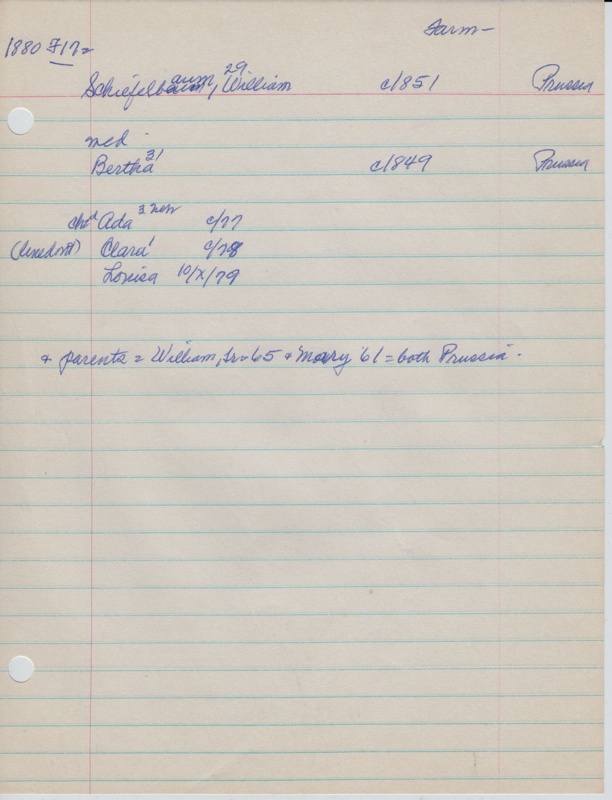 Farm-
1880 F17=
Schiefelbaum, William 29 c/851 Prussia
aum
med
Bertha 31 c/849 Prussia
chd Ada 3 c/77
Clara 1 c/78
Louisa 10/X/79
& parents = William, Sr-65 & Mary 61 = both Prussia.